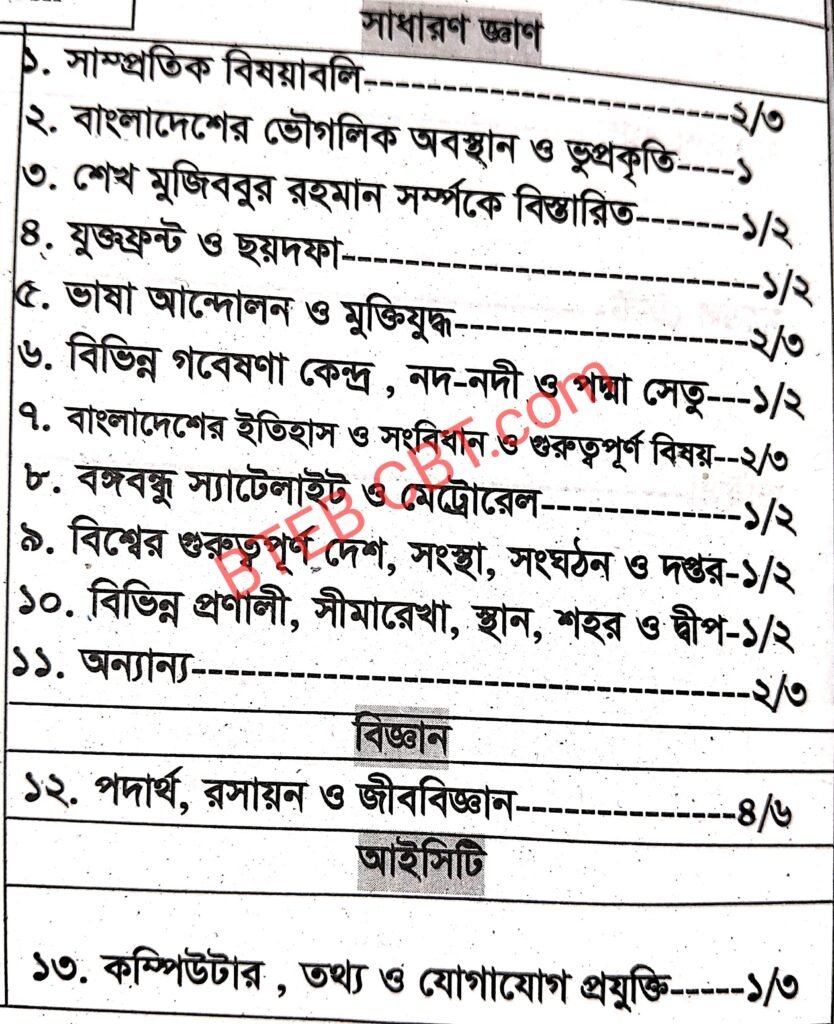 সাধারণ জ্ঞাণ
১. সাম্প্রতিক বিষয়াবলি-----------------------------২/৩
২. বাংলাদেশের ভৌগলিক অবস্থান ও ভুপ্রকৃতি----১
৩. শেখ মুজিববুর রহমান সর্ম্পকে বিস্তারিত-------১/২
৪. যুক্তফ্রন্ট ও ছয়দফা-----------------------------১/২
৫. ভাষা আন্দোলন ও মুক্তিযুদ্ধ--------------------২/৩
৬. বিভিন্ন গবেষণা কেন্দ্র , নদ-নদী ও পদ্মা সেতু---১/২
৭. বাংলাদেশের ইতিহাস ও সংবিধান ও গুরুত্বপূর্ণ বিষয়--২/৩
৮. বঙ্গবন্ধু স্যাটেলাইট ও মেট্রোরেল--------------১/২
৯. বিশ্বের গুরুত্বপূর্ণ দেশ, সংস্থা, সংঘঠন ও দপ্তর-১/২
১০. বিভিন্ন প্রণালী, সীমারেখা, স্থান, শহর ও দ্বীপ-১/২
১১. অন্যান্য---------------------------------------২/৩
বিজ্ঞান
১২. পদার্থ, রসায়ন ও জীববিজ্ঞান---------------৪/৬
আইসিটি
১৩. কম্পিউটার , তথ্য ও যোগাযোগ প্রযুক্তি-----১/৩
BTEB CBT.com